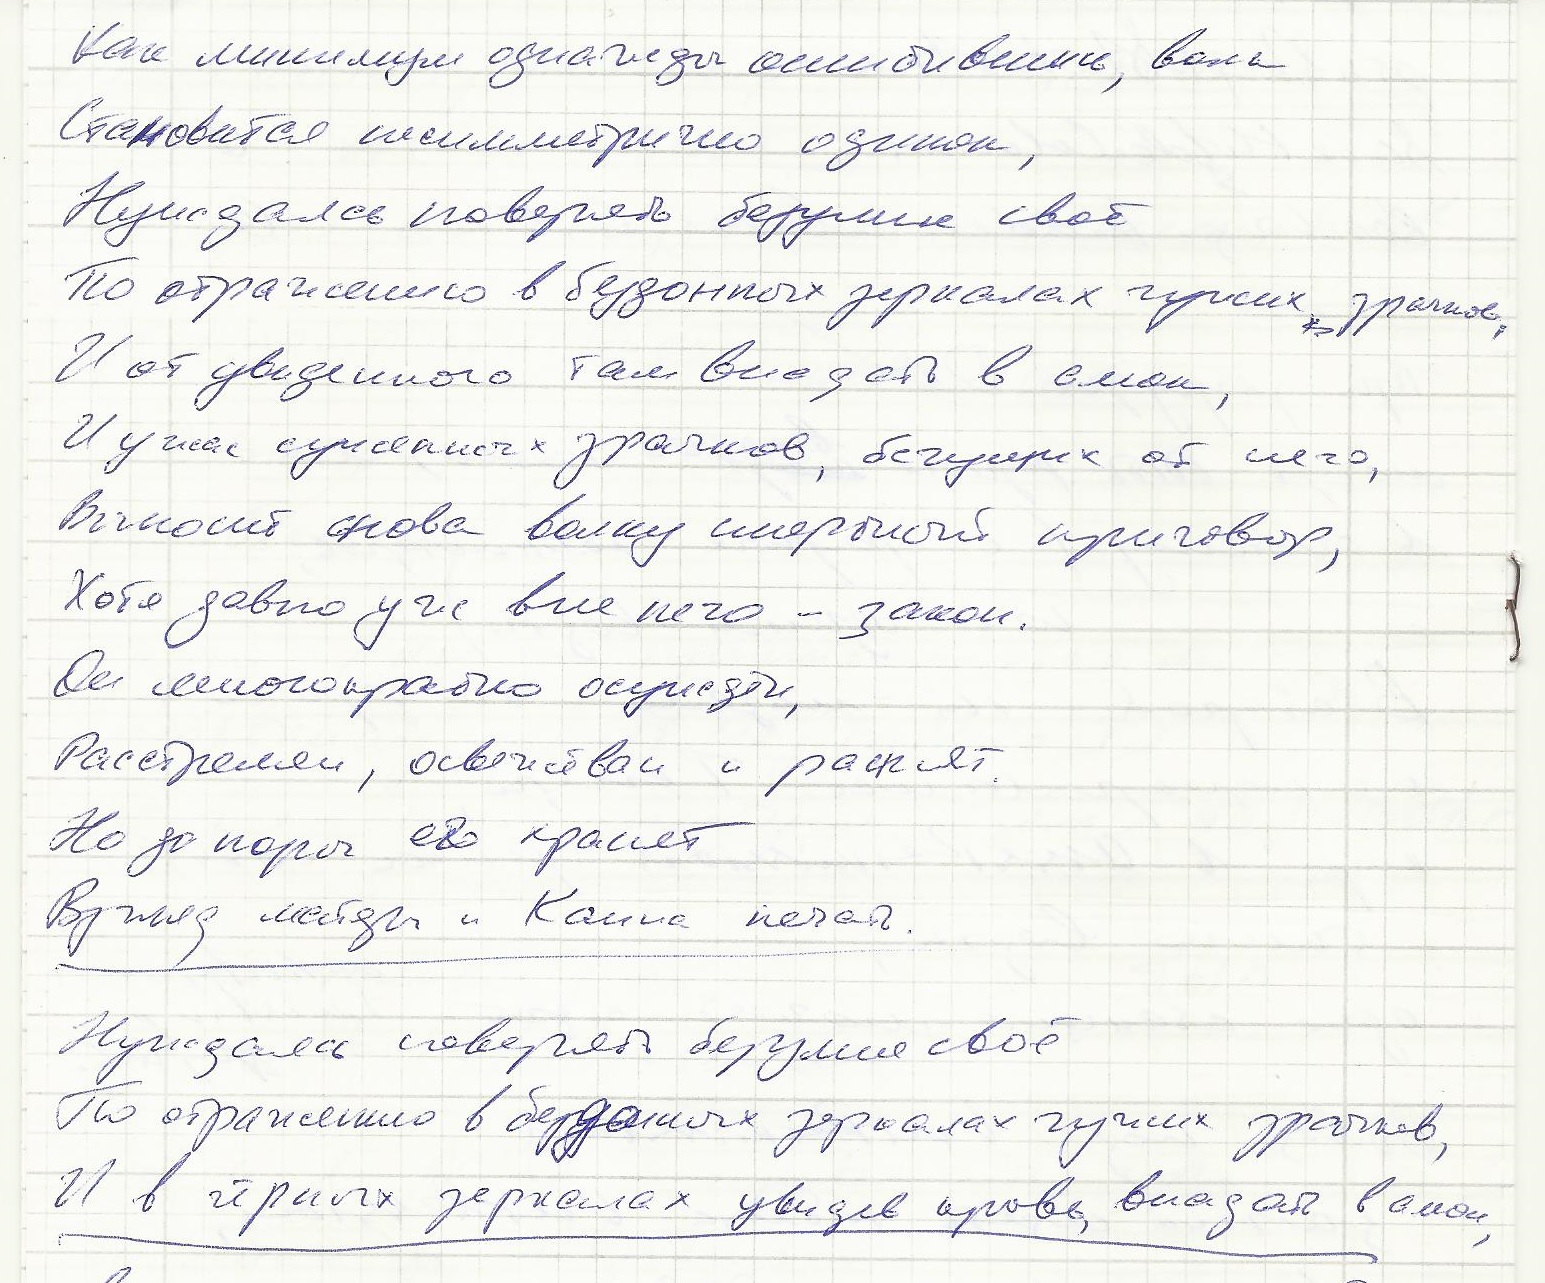 Как минимум однажды ошибившись, волк
Становится несимметрично одинок,
Нуждаясь поверять безумие своё
По отражению в бездонных зеркалах чужих зрачков,
И от увиденного там впадать в амок,
И ужас суженных зрачков, бегущих от него,
Выносит снова волку смертный приговор,
Хотя давно уже вне него – закон.
Он многократно осуждён,
Расстрелян, освежёван и распят.
Но до поры его хранят
Взгляд жертвы и Каина печать.
Нуждаясь поверять безумие своё
По отражению в бездонных зеркалах чужих зрачков,
И в чёрных зеркалах увидев кровь, впадать в амок,